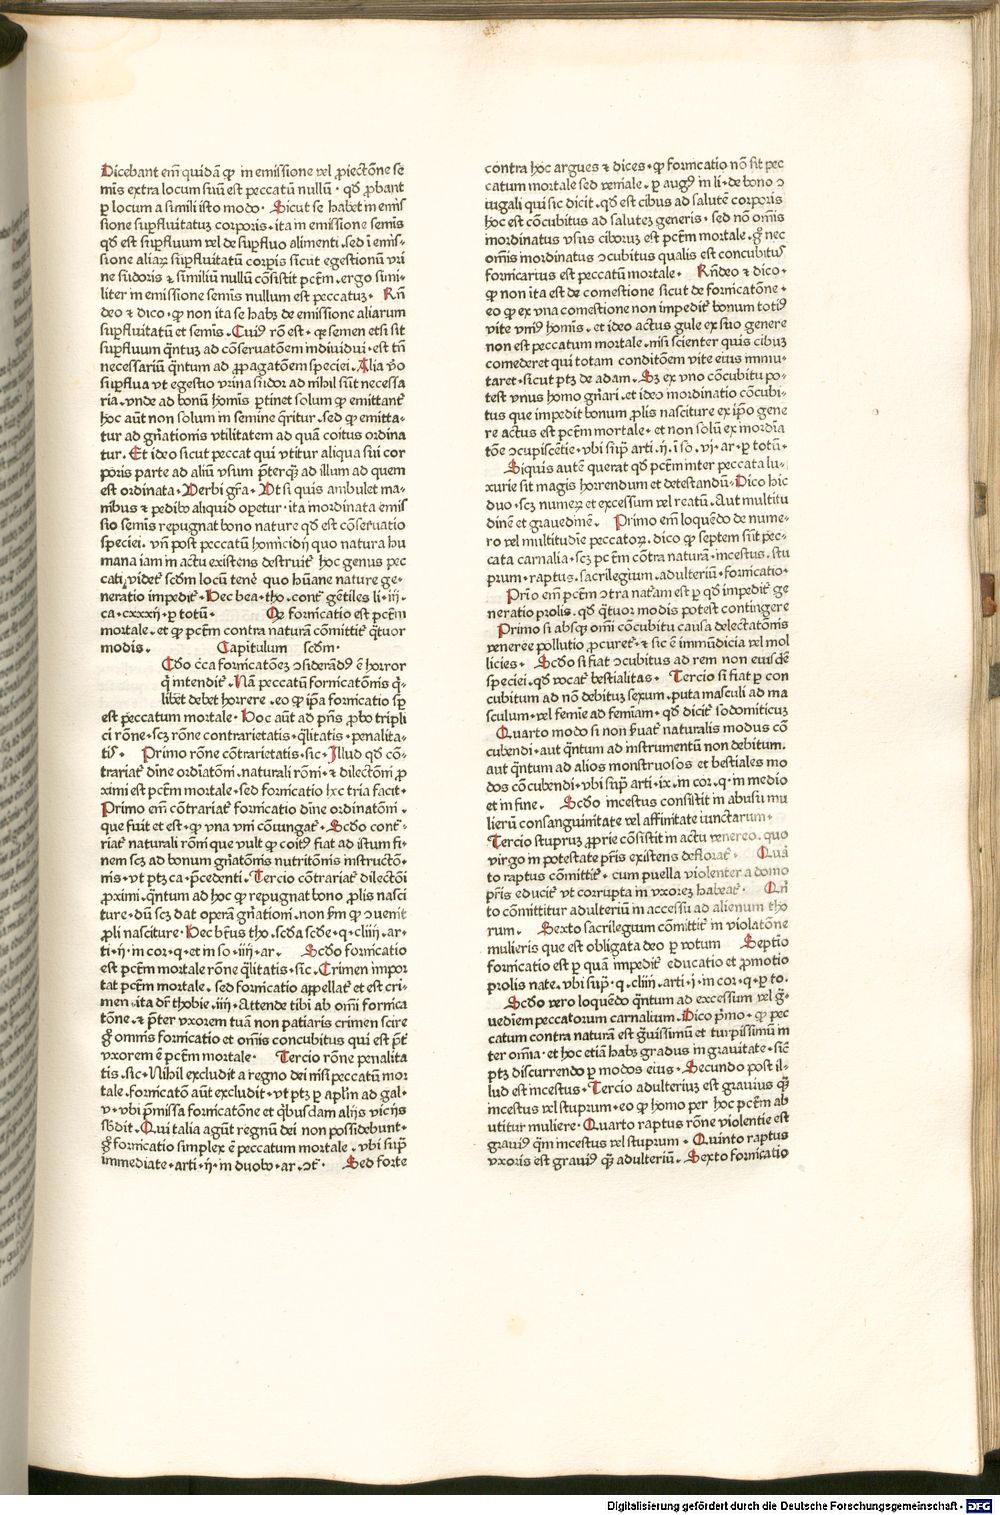 Dicebant em̄ quidā ꝙ in emissione vel ꝓiectōne se
mīs extra locum suū est peccatū nullū · qđ ꝓbant
ꝑ locum a simili isto modo · Sicut se habet in emis
sione suꝑfluitatuꝫ corporis · ita in emissione semīs
qđ est suꝑfluum vel de suꝑfluo alimenti · sed ī emis⸗
sione aliaꝝ suꝑfluitatū corꝑis sicut egestionū vri
ne sudoris ⁊ similiū nullū cōsistit pctm̄ · ergo simi⸗
liter in emissione semīs nullum est peccatuꝫ · Rn̄
deo ⁊ dico · ꝙ non ita se habꝫ de emissione aliarum
suꝑfluitatū et semīs · Cuiꝰ rō est · qꝛ semen etsi sit
suꝑfluum qn̄tuꝫ ad cōseruatōem indiuidui · est tn̄
necessariū qn̄tum ad ꝓpagatōem speciei · Alia v̄o
suꝑflua vt egestio vrina sudor ad nihil sūt necessa
ria · vnde ad bonū homīs ꝑtinet solum ꝙ emittant̄
hoc aūt non solum in semine qr̄itur · sed ꝙ emitta⸗
tur ad gn̄ationis vtilitatem ad quā coitus ordina
tur · Et ideo sicut peccat qui vtitur aliqua sui cor
poris parte ad aliū vsum p̄terqꝫ̄ ad illum ad quem
est ordinata · Verbi gr̄a · Vt si quis ambulet ma⸗
nibus ⁊ pedibꝰ aliquid oꝑetur · ita inordinata emis
sio semīs repugnat bono nature qđ est cōseruatio
speciei · vn̄ post peccatū homicidij quo natura hu
mana iam in actu existens destruit̄ hoc genus pec
cati videt̄ scđm locū tenē quo hūane nature ge⸗
neratio impedit̄ · Hec bea · tho · cont̄ gētiles li · iij ·
ca · cxxxij · ꝑ totū · Qꝫ fornicatio est pctm̄
mortale · et ꝙ pctm̄ contra naturā cōmittit̄ qr̄tuor
modis · Capitulum scđm ·
Scđo c̄ca fornicatōeꝫ ↄsiderādꝰ ē horror
q̄ intendit̄ · Nā peccatū fornicatōnis q̄⸗
libet debet horrere · eo ꝙ ip̄a fornicatio sꝑ
est peccatum mortale · Hoc aūt ad pn̄s ꝓbo tripli
ci rōne · scꝫ rōne contrarietatis · q̄litatis · penalita⸗
tis · Primo rōne cōtrarietatis · sic · Illud qđ cō⸗
trariat̄ dīne ordīatōni · naturali rōni · ⁊ dilectōni ꝓ
ximi est pctm̄ mortale · sed fornicatio hec tria facit ·
Primo em̄ cōtrariat̄ fornicatio dīne ordinatōni ·
que fuit et est · ꝙ vna vni cōiungat̄ · Scđo cont̄⸗
riat̄ naturali rōni que vult ꝙ coitꝰ fiat ad istum fi⸗
nem scꝫ ad bonum gn̄atōnis nutritōnis instructō⸗
nis · vt ptꝫ ca · p̄cedenti · Tercio cōtrariat̄ dilectōi
ꝓximi · qn̄tum ad hoc ꝙ repugnat bono ꝓlis nasci
ture · dū scꝫ dat operā gn̄ationi · non s̄m ꝙ ↄuenit
ꝓli nasciture · Hec bt̄us tho · scđa scđe · q · cliiij · ar⸗
ti · ij · in cor · q · et in so · iiij · ar · Scđo fornicatio
est pctm̄ mortale rōne q̄litatis · sic · Crimen impor
tat pctm̄ mortale · sed fornicatio apꝑellat̄ et est cri⸗
men · ita dr̄ thobie · iiij · Attende tibi ab om̄i fornica
tōne · ⁊ p̄ter vxorem tuā non patiaris crimen scire
gͦ omnis fornicatio et om̄is concubitus qui est p̄t̄
vxorem ē pctm̄ mortale · Tercio rōne penalita
tis · sic · Nihil excludit a regno dei nisi peccatū mor
tale · fornicatō aūt excludit · vt ptꝫ ꝑ apl̄m ad gal ·
v · vbi p̄missa fornicatōne et qͥbusdam alijs vicijs
sb̄dit · Qui talia agūt regnū dei non possidebunt ·
gͦ fornicatio simplex ē peccatum mortale · vbi suꝑ̄
immediate · arti · ij · in duobꝰ · ar · ↄt̄ · Sed forte
contra hoc argues ⁊ dices · ꝙ fornicatio nō sit pec
catum mortale sed veniale · ꝑ augꝰ in li · de bono ↄ
iugali qui sic dicit · qđ est cibus ad salutē corporis
hoc est cōcubitus ad saluteꝫ generis · sed nō om̄is
inordinatus vsus ciboruꝫ est pctm̄ mortale · gͦ nec
om̄is inordinatus ↄcubitus qualis est concubitus
fornicarius est peccatū mortale · Rn̄deo ⁊ dico ·
ꝙ non ita est de comestione sicut de fornicatōne ·
eo ꝙ ex vna comestione non impedit̄ bonum totiꝰ
vite vniꝰ homīs · et ideo actus gule ex suo genere
non est peccatum mortale · nisi scienter quis cibuꝫ
comederet qui totam conditōem vite eius immu⸗
taret · sicut ptꝫ de adam · Sꝫ ex vno cōcubitu po⸗
test vnus homo gn̄ari · et ideo inordinatio cōcubi⸗
tus que impedit bonum ꝓlis nasciture ex ip̄o gene
re actus est pctm̄ mortale · et non solū ex inordīa
tōe ↄcupiscētie · vbi suꝑ̄ arti · ij · ī so · vj · ar · ꝑ totū ·
Siquis autē querat qđ pctm̄ inter peccata lu⸗
xurie sit magis horrendum et detestandū · Dico hic
duo · scꝫ numeꝝ et excessum vel reatū · Aut multitu
dinē et grauedinē · Primo em̄ loquēdo de nume⸗
ro vel multitudīe peccatoꝝ · dico ꝙ septem sūt pec⸗
cata carnalia · scꝫ pctm̄ cōtra naturā · incestus · stu
prum · raptus · sacrilegium · adulteriū · fornicatio ·
Prīo em̄ pctm̄ ↄtra nat̄am est ꝑ qđ impedit̄ ge
neratio prolis · qđ qr̄tuor modis potest contingere
Primo si absqꝫ om̄i cōcubitu causa delectatōnis
veneree pollutio ꝓcuret̄ · ⁊ sic ē immūdicia vel mol
licies · Scđo si fiat ↄcubitus ad rem non eiusdē
speciei · qđ vocat̄ bestialitas · Tercio si fiat ꝑ con
cubitum ad nō debituꝫ sexum · puta masculi ad ma
sculum · vel femīe ad femīam · qđ dicit̄ sodomiticuꝫ
Quarto modo si non s̄uat̄ naturalis modus cō
cubendi · aut qn̄tum ad instrumentū non debitum ·
aut qn̄tum ad alios monstruosos et bestiales mo
dos cōcubendi · vbi suꝑ̄ arti · ix · in cor · q · in medio
et in fine · Scđo incestus consistit in abusu mu
lierū consanguinitate vel affinitate iunctarum ·
Tercio stupruꝫ ꝓprie cōsistit in actu venereo · quo
virgo in potestate pr̄is existens deflorat̄ · Quar̄
to raptus cōmittit̄ · cum puella violenter a domo
pr̄is educit̄ vt corrupta in vxoreꝫ habeat̄ · Qn̄
to cōmittitur adulteriū in accessu ad alienum tho
rum · Sexto sacrilegium cōmittit̄ in violatōne
mulieris que est obligata deo ꝑ votum Septīo
fornicatio est ꝑ quā impedit̄ educatio et ꝓmotio
prolis nate · vbi suꝑ̄ · q · cliiij · arti · i · in cor · q · ꝑ to ·
Scđo vero loquēdo qn̄tum ad excessum vel gͣ⸗
uedīem peccatorum carnalium · Dico pͥmo · ꝙ pec
catum contra naturā est gͣuissimū et turpissimū in
ter om̄ia · et hoc etiā habꝫ gradus in grauitate · sic̄
ptꝫ discurrendo ꝑ modos eius · Secundo post il⸗
lud est incestus · Tercio adulteriuꝫ est grauius qꝫ̄
incestus vel stuprum · eo ꝙ homo per hoc pctm̄ ab
utitur muliere · Quarto raptus rōne violentie est
grauiꝰ qm̄ incestus vel stuprum · Quinto raptus
vxoris est grauiꝰ qꝫ̄ adulteriū · Sexto fornicatio
Digitalisierung gefördert durch die Deutsche Forschungsgemeinschaft - DFG